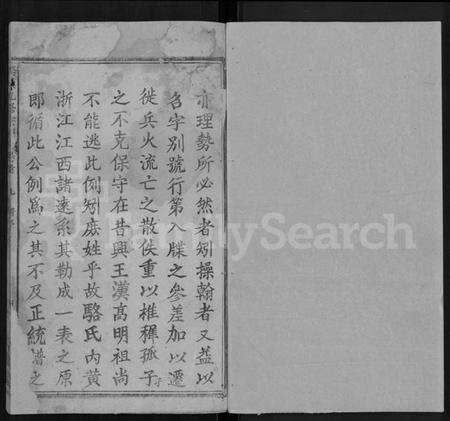 亦理勢所必然者矧操翰者又益以
名字别號行第入牒之參差加以遷
徙兵火流亡之散佚重以椎稺孤子
之不克保守在昔興王漢高明祖尚
不能逃此例矧庶姓乎故駱氏内黄
浙江江西諸遠系其勒成一表之原
即循此公例為之其不及正統譜之
FamilySearch